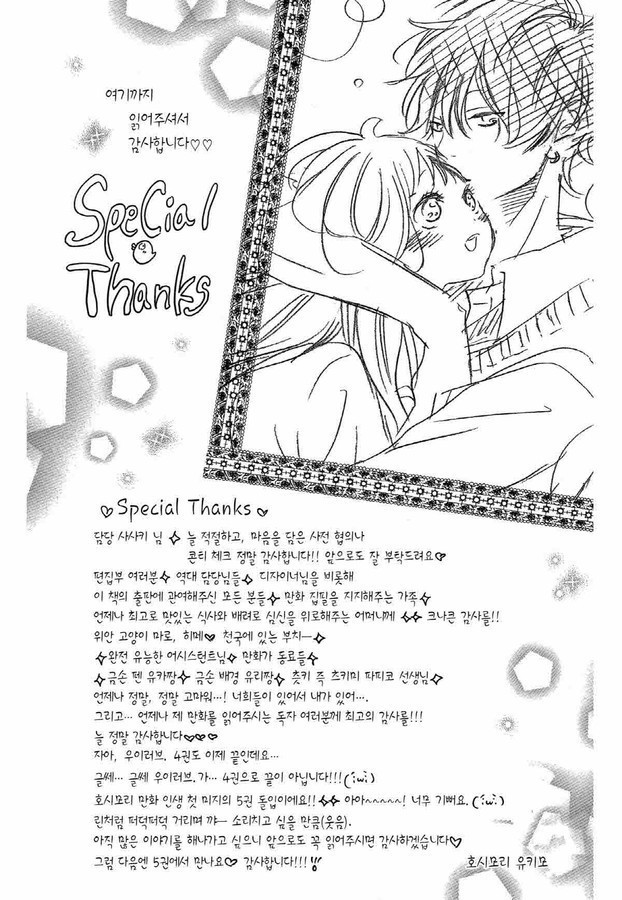 여기까지
읽어주셔서
감사합니다♡♡
Special
Thanks
♡Special Thanks♡
담당 사사키 님✧ 늘 적절하고, 마음을 담은 사전 협의나
콘티 체크 정말 감사합니다!! 앞으로도 잘 부탁드려요♡
편집부 여러분✧ 역대 담당님들✧ 디자이너님을 비롯해
이 책의 출판에 관여해주신 모든 분들✧ 만화 집필을 지지해주는 가족✧
언제나 최고로 맛있는 식사와 배려로 심신을 위로해주는 어머니께 ✧✧ 크나큰 감사를!!
위안 고양이 마로, 히메♡ 천국에 있는 부치ー✧
✧완전 유능한 어시스턴트님✧ 만화가 동료들✧
✧금손 펜 유카짱✧ 금손 배경 유리짱✧ 츳키 즉 츠키미 파피코 선생님✧
언제나 정말, 정말 고마워…! 너희들이 있어서 내가 있어….
그리고… 언제나 제 만화를 읽어주시는 독자 여러분께 최고의 감사를!!!
늘 정말 감사합니다♡♡♡♡♡
자아, 우이러브. 4권도 이제 끝인데요…
글쎄… 글쎄 우이러브.가… 4권으로 끝이 아닙니다!!!(;ω;)
호시모리 만화 인생 첫 미지의 5권 돌입이에요!!✧✧ 아아~~~~~! 너무 기뻐요. (;ω;)
린처럼 퍼덕퍼덕 거리며 꺄ー 소리치고 싶을 만큼(웃음).
아직 많은 이야기를 해나가고 싶으니 앞으로도 꼭 읽어주시면 감사하겠습니다♡
그럼 다음엔 5권에서 만나요♡ 감사합니다!!!
호시모리 유키모